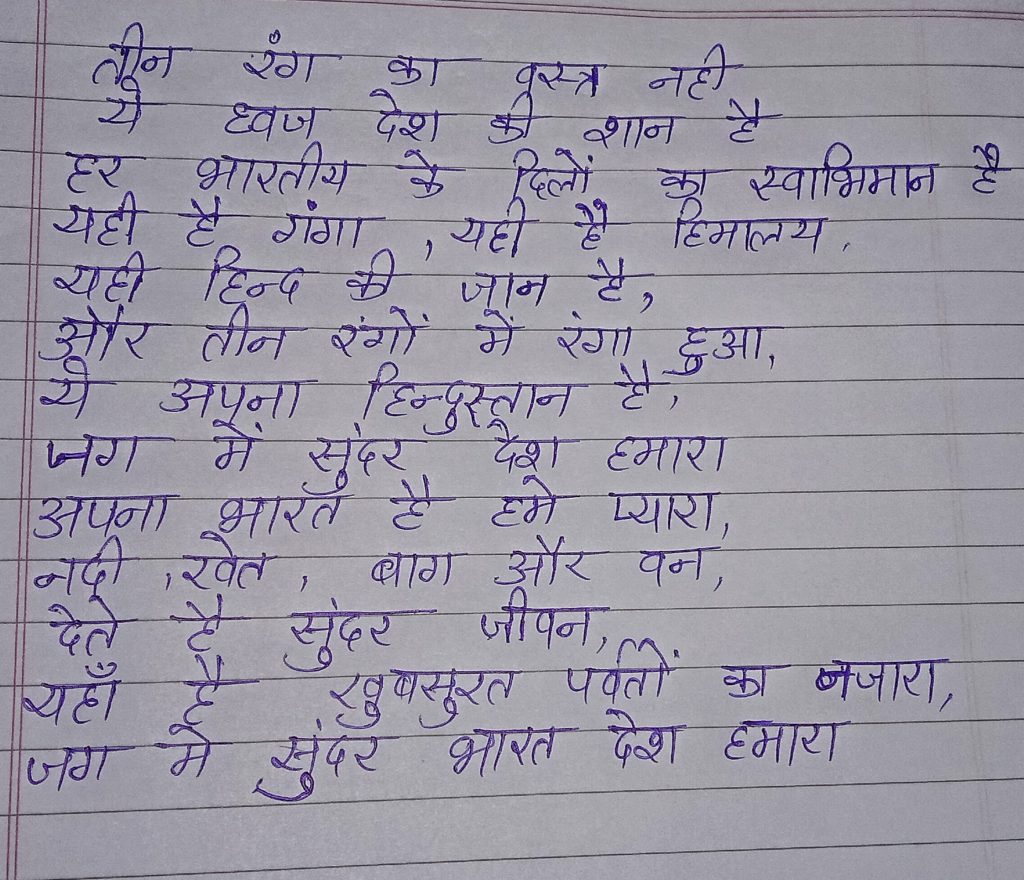 तीन रंग का वस्त्र नही
ये ध्वज देश की शान है
हर भारतीय के दिलों का स्वाभिमान है
यही है गंगा , यही है हिमालय,
यही हिन्द की जान है,
और तीन रंगों में रंगा हुआ,
ये अपना हिन्दुस्तान है,
जग में सुंदर देश हमारा
अपना भारत है हमे प्यारा,
नदी , खेत , बाग और वन,
देते है सुंदर जीवन,
यहाँ है खुबसुरत पर्वतों का नजारा,
जग मे सुंदर भारत देश हमारा